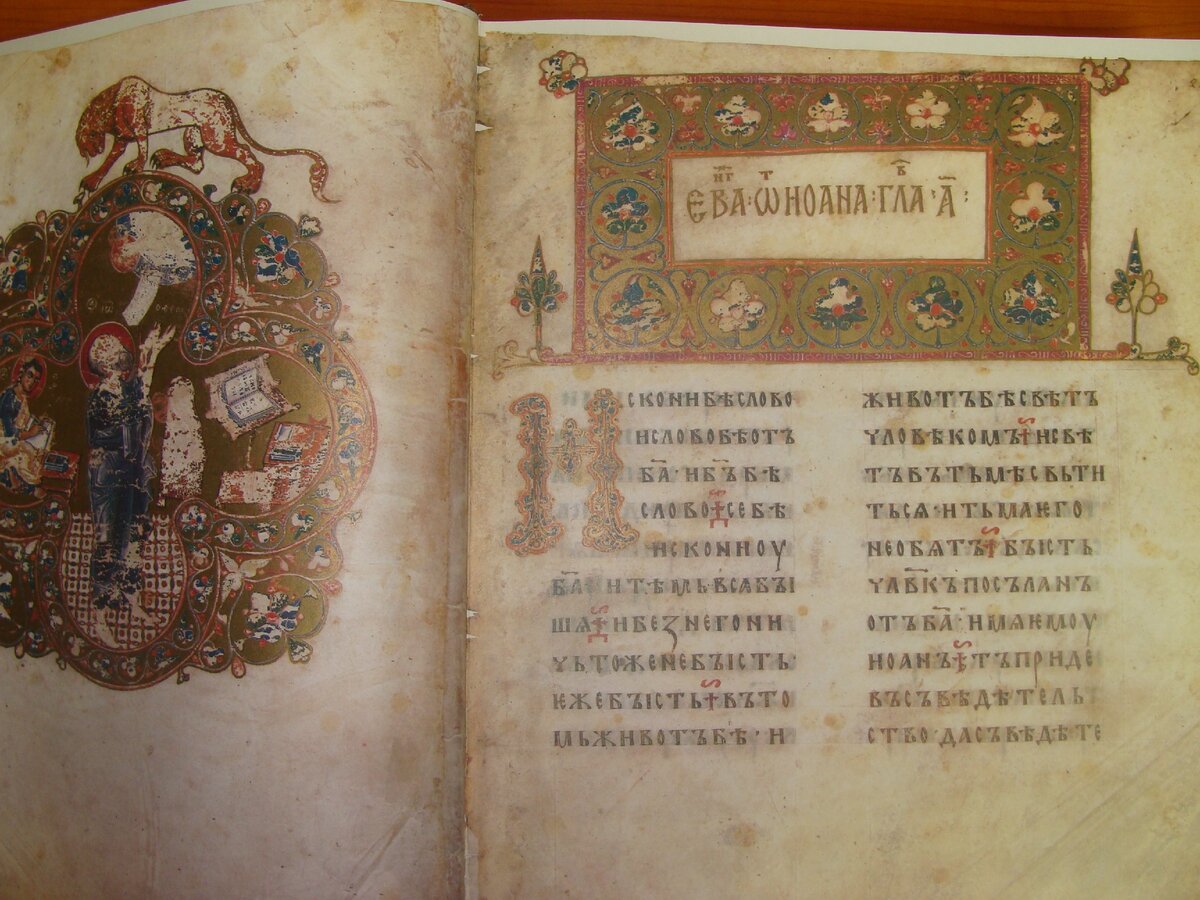 ЕВА҃НГ·Ѿ ИОАНА·ГЛАВ·А҃·
ИСКОНИБѢСЛОВО
ИСЛОВОБѢОТЪ
БА҃·ИБ҃ЪБѢ
СЛОВО·СЕБѢ
ИСКОНИОУ
БА҃·ИТѢМЬВСꙖБЫ
ШѦ·ИБЕЗНЕГОНИ
ЧЬТОЖЕНЕБЪІСТЬ·
ѤЖЕБЪІСТЬ·ВЪТО
МЬЖИВОТЪБѢ·И
ЖИВОТЪБѢСВѢТЪ
ЧЛОВѢКОМЪ·ИСВѢ
ТЪВЪТЬМѢСВЬТИ
ТЬСѦ·ИТЬМАѤГО
НЕОБѦТЪ·БЪІСТЬ
ЧЛ҃ВКЪПОСЪЛАНЪ
ОТЪБА҃·ИМѦѤМОУ
ИОАНЪ·ТЪПРИДЕ
ВЪСЪВѢДѢТЕЛЬ
СТВО·ДАСЪВѢДѢТЕ